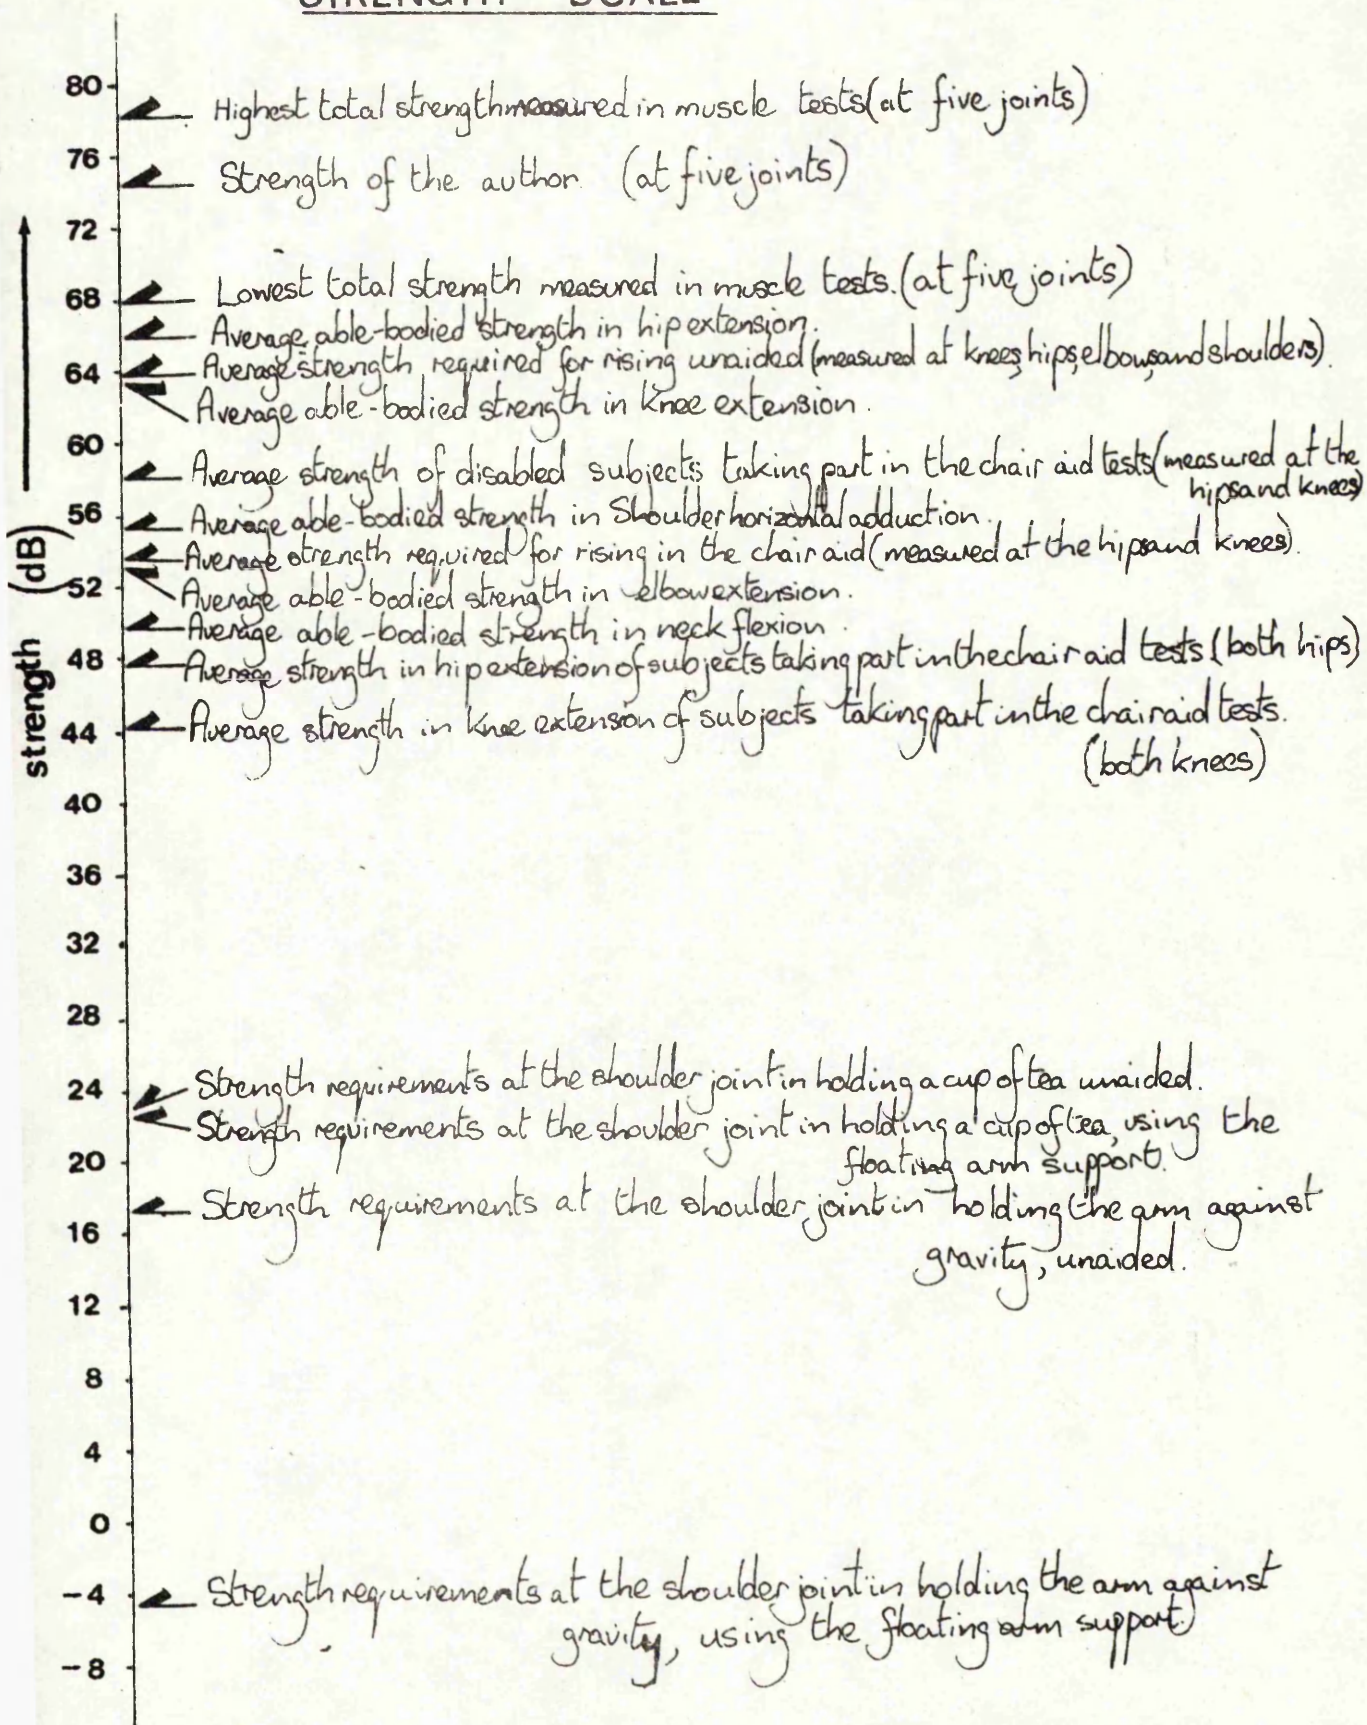 STRENGTH SCALE
80
Highest total strength measured in muscle tests (at five joints)
76
Strength of the author (at five joints)
72
Lowest total strength measured in muscle tests. (at five joints)
68
Average able-bodied strength in hip extension.
Average strength required for rising unaided (measured at knees, hips, elbows and shoulders).
64
Average able-bodied strength in knee extension.
60
Average strength of disabled subjects taking part in the chair aid tests (measured at the
hips and knees)
56
Average able-bodied strength in Shoulder horizontal adduction.
Average strength required for rising in the chair aid (measured at the hips and knees).
52
Average able-bodied strength in elbow extension.
Average able-bodied strength in neck flexion.
48
Average strength in hip extension of subjects taking part in the chair aid tests (both hips)
44
Average strength in knee extension of subjects taking part in the chair aid tests.
(both knees)
40
36
32
28
24
Strength requirements at the shoulder joint in holding a cup of tea unaided.
Strength requirements at the shoulder joint in holding a cup of tea, using the
floating arm support.
20
Strength requirements at the shoulder joint in holding the arm against
16
gravity, unaided.
12
8
4
0
-4
Strength requirements at the shoulder joint in holding the arm against
gravity, using the floating arm support.
-8
strength (dB)